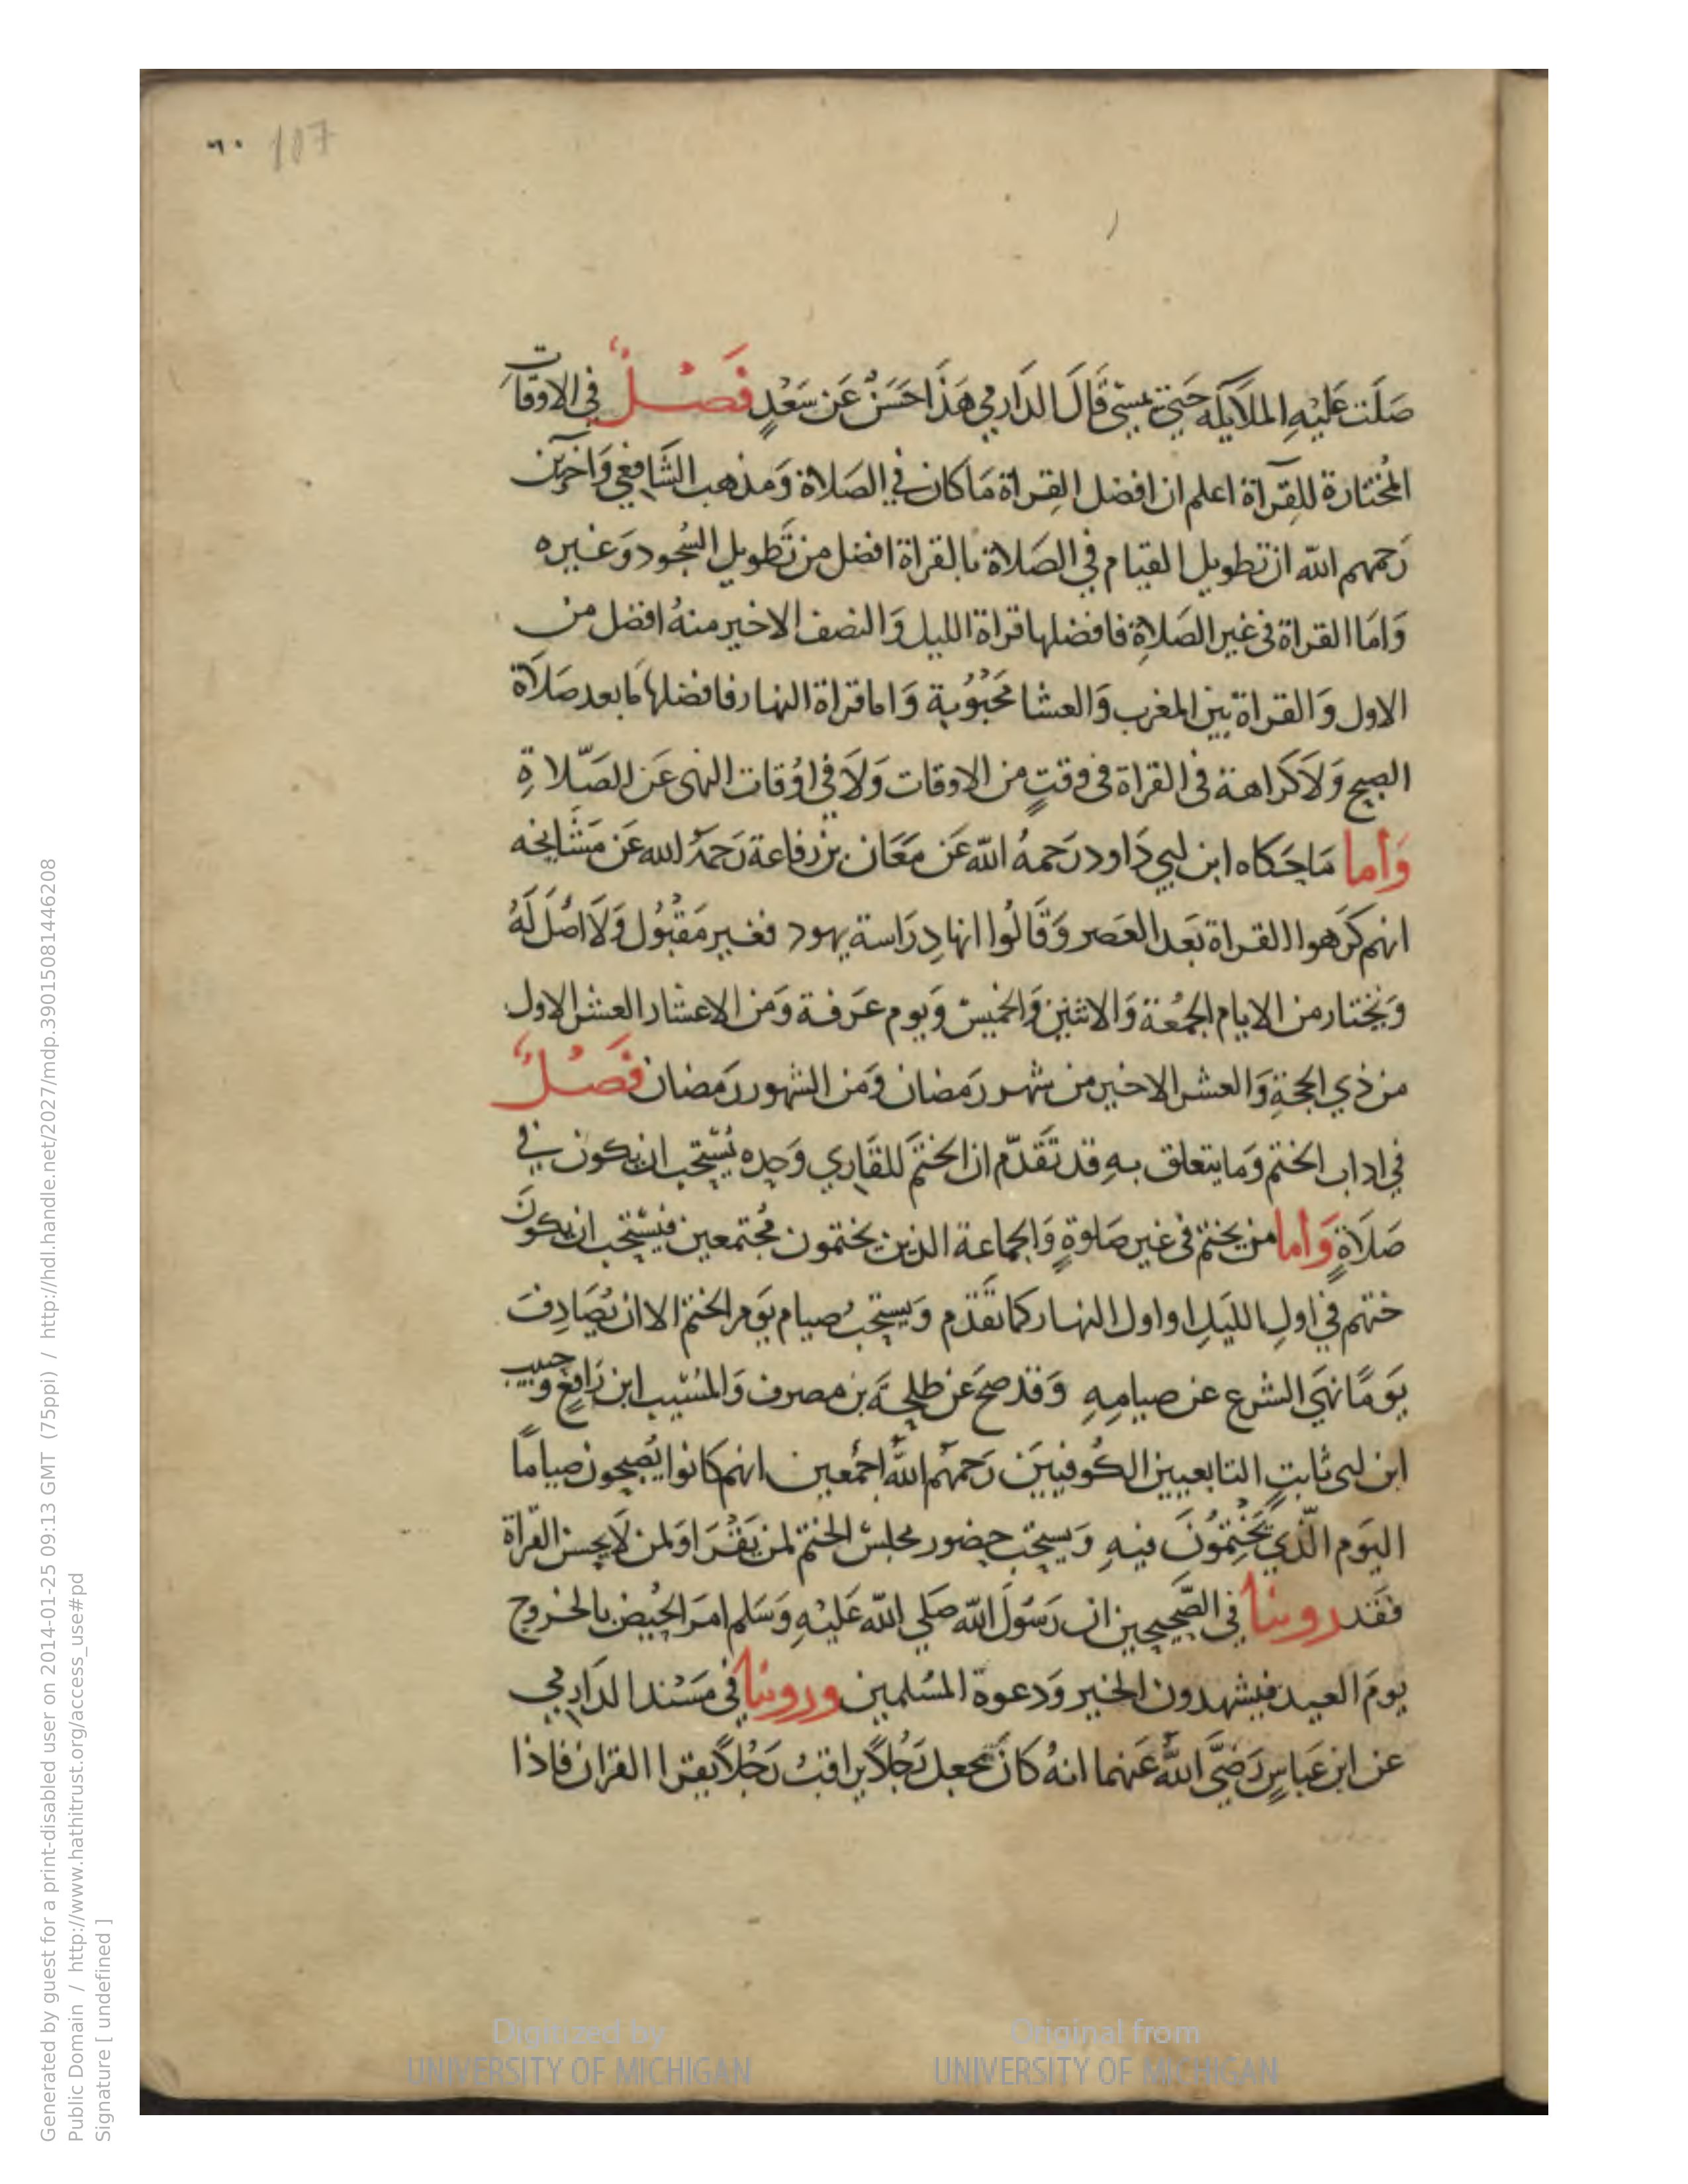 ٦٠ 107
صَلَت عَلَيْهِ الملَايكَه حَتي يمسيَ قَالَ الدَارمِي هَذَا حَسَنٌ عَن سَعْدٍ فَصْلٌ في الاوقَات
المُختَارة للِقرَآة اعلم ان افضل القِراة مَا كان في الصَلاة وَمذهب الشَافِعي وَاخرَين
رَحمهم الله ان تطويل القيام في الصَلاة بالقراة افضل من تَطويل السُجود وَغيره
وَامَا القراة في غير الصَلاةِ فافضلها قراة الليل وَالنصف الاخير منهُ افضل من
الاول وَالقراة بين المغرب وَالعشا محَبُوُبة وَاما قراة النهار فافضلها مَا بعد صَلَاة
الصبح وَلاَ كَراهة في القراة في وقتٍ من الاوقات وَلاَ في اوُقات النهى عَن الصَّلاةِ
وَأما مَا حَكاه ابن ابي دَاود رَحمهُ الله عَن معَان بن رفاعة رَحمَهُ الله عَن مَشَايخه
انهم كَرهوا القراة بَعد العَصر وَقَالُوا انها دِرَاسة يهود فغير مَقبُول وَلاَ اصَل لَهُ
وَيختار من الايام الجمُعَة وَالاثنين وَالخميسْ وَيوم عَرفة وَمن الاعشار العشر الاول
من ذي الحجةِ وَالعشر الاخير من شهر رَمضان وَمن الشهور رَمضان فَصْلٌ
في اداب الختم وَما يتعلق بهِ قد تَقَدّم ان الختمَ للقَاري وَحده يُستَحب ان يكون في
صَلَاةٍ وَأما من يختم في غير صَلوةٍ وَالجماعة الذين يختمون مُجتمعين فيُستحب ان يكونَ
ختهم في اولِ الليَلِ او اول النهار كما تقَدّم وَيستحبُ صيام يَوم الختم الا ان يُصَادِفَ
يَومًا نهيَ الشرع عن صيامِهِ وَقد صحَ عَن طلحَة بن مصرف وَالمسُيّب ابن رَافعٍ وحبيب
ابن ابى ثابتٍ التابعيين الكُوفيينَ رَحمهُم اللهُ اجمْعين انهم كانوا يُصبحون صياماً
اليَوم الَّذي يَخْتِمُونَ فيهِ وَيستحب حضور مجلسْ الختم لمن يَقرَا وَلمن لاَ يحسن القرَاة
فقَد روينا في الصَّحيحين ان رَسَوُلَ الله صَلي الله عَليْهِ وَسَلم امَر الحُيض بالخروج
يَومَ العيد فيشهدون الخير وَدعوة المسُلمين وروينا في مسَند الدَارمِي
عن ابن عَباسٍ رَضَّيَ اللهُ عَنهما انهُ كانَ يجعل رَجُلاً يراقبُ رَجُلاً يقرا القرَان فاذا
Generated by guest for a print-disabled user on 2014-01-25 09:13 GMT (75ppi) / http://hdl.handle.net/2027/mdp.39015081446208
Public Domain / http://www.hathitrust.org/access_use#pd
Signature [ undefined ]
Digitized by
UNIVERSITY OF MICHIGAN
Original from
UNIVERSITY OF MICHIGAN